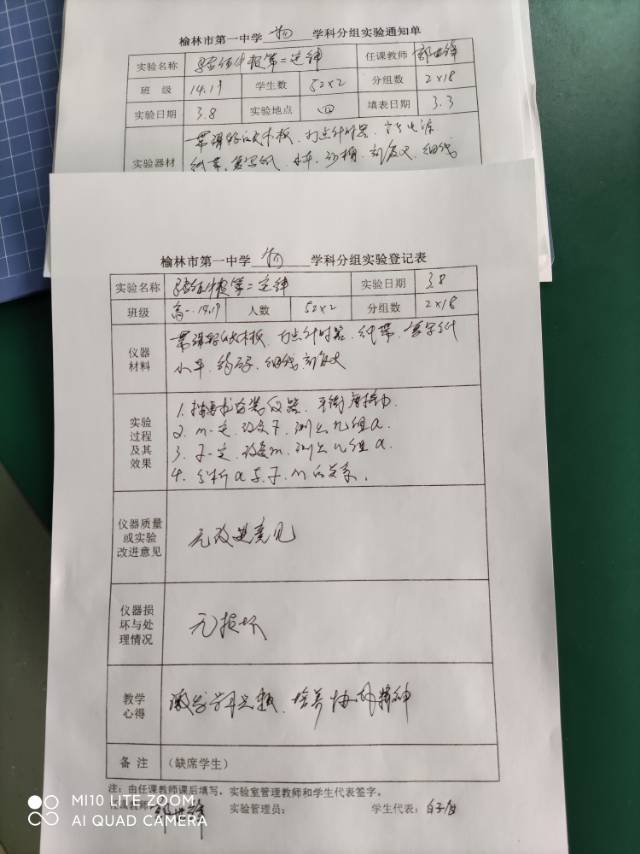 榆林市第一中学 物 学科分组实验通知单
实验名称 验证牛顿第二定律 任课教师
班 级 14.19 学生数 52×2 分组数 2×18
实验日期 3.8 实验地点 四 填表日期 3.3
带滑轮的长木板、打点计时器、学生电源
实验器材 纸带、复写纸、小车、砂桶、刻度尺、细线
榆林市第一中学 物 学科分组实验登记表
实验名称 验证牛顿第二定律 实验日期 3.8
班级 高一.14.19 人数 52×2 分组数 2×18
仪器材料 带滑轮的长木板、打点计时器、纸带、复写纸
小车、钩码、细线、刻度尺
实验过程及其效果 1. 按要求安装仪器、平衡摩擦力.
2. m一定,改变F,测出几组a.
3. F一定,改变m,测出几组a.
4. 分析a与F、m的关系.
仪器质量或实验改进意见 无改进意见
仪器损坏与处理情况 无损坏
教学心得 激发学习兴趣、培养协作精神
备 注 (缺席学生)
注:由任课教师课后填写,实验室管理教师和学生代表签字。
实验管理员: 学生代表:
MI10 LITE ZOOM
AI QUAD CAMERA